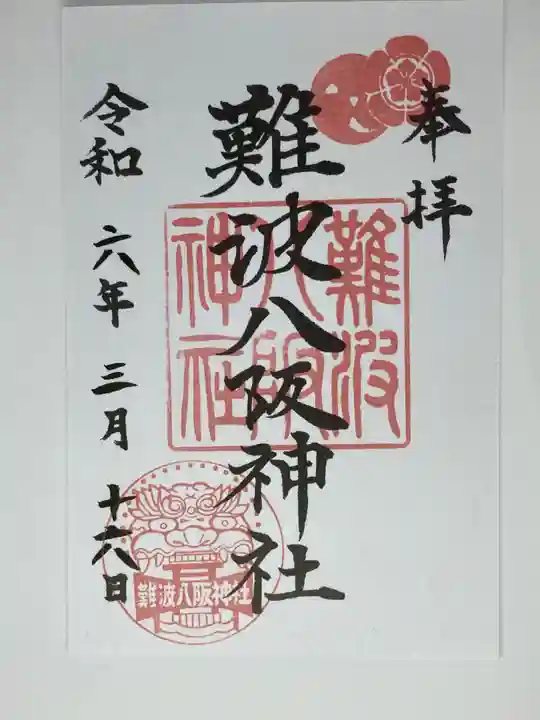 奉拝
難波八阪神社
難波
八阪
神社
令和 六年 三月 十六日
難波八阪神社